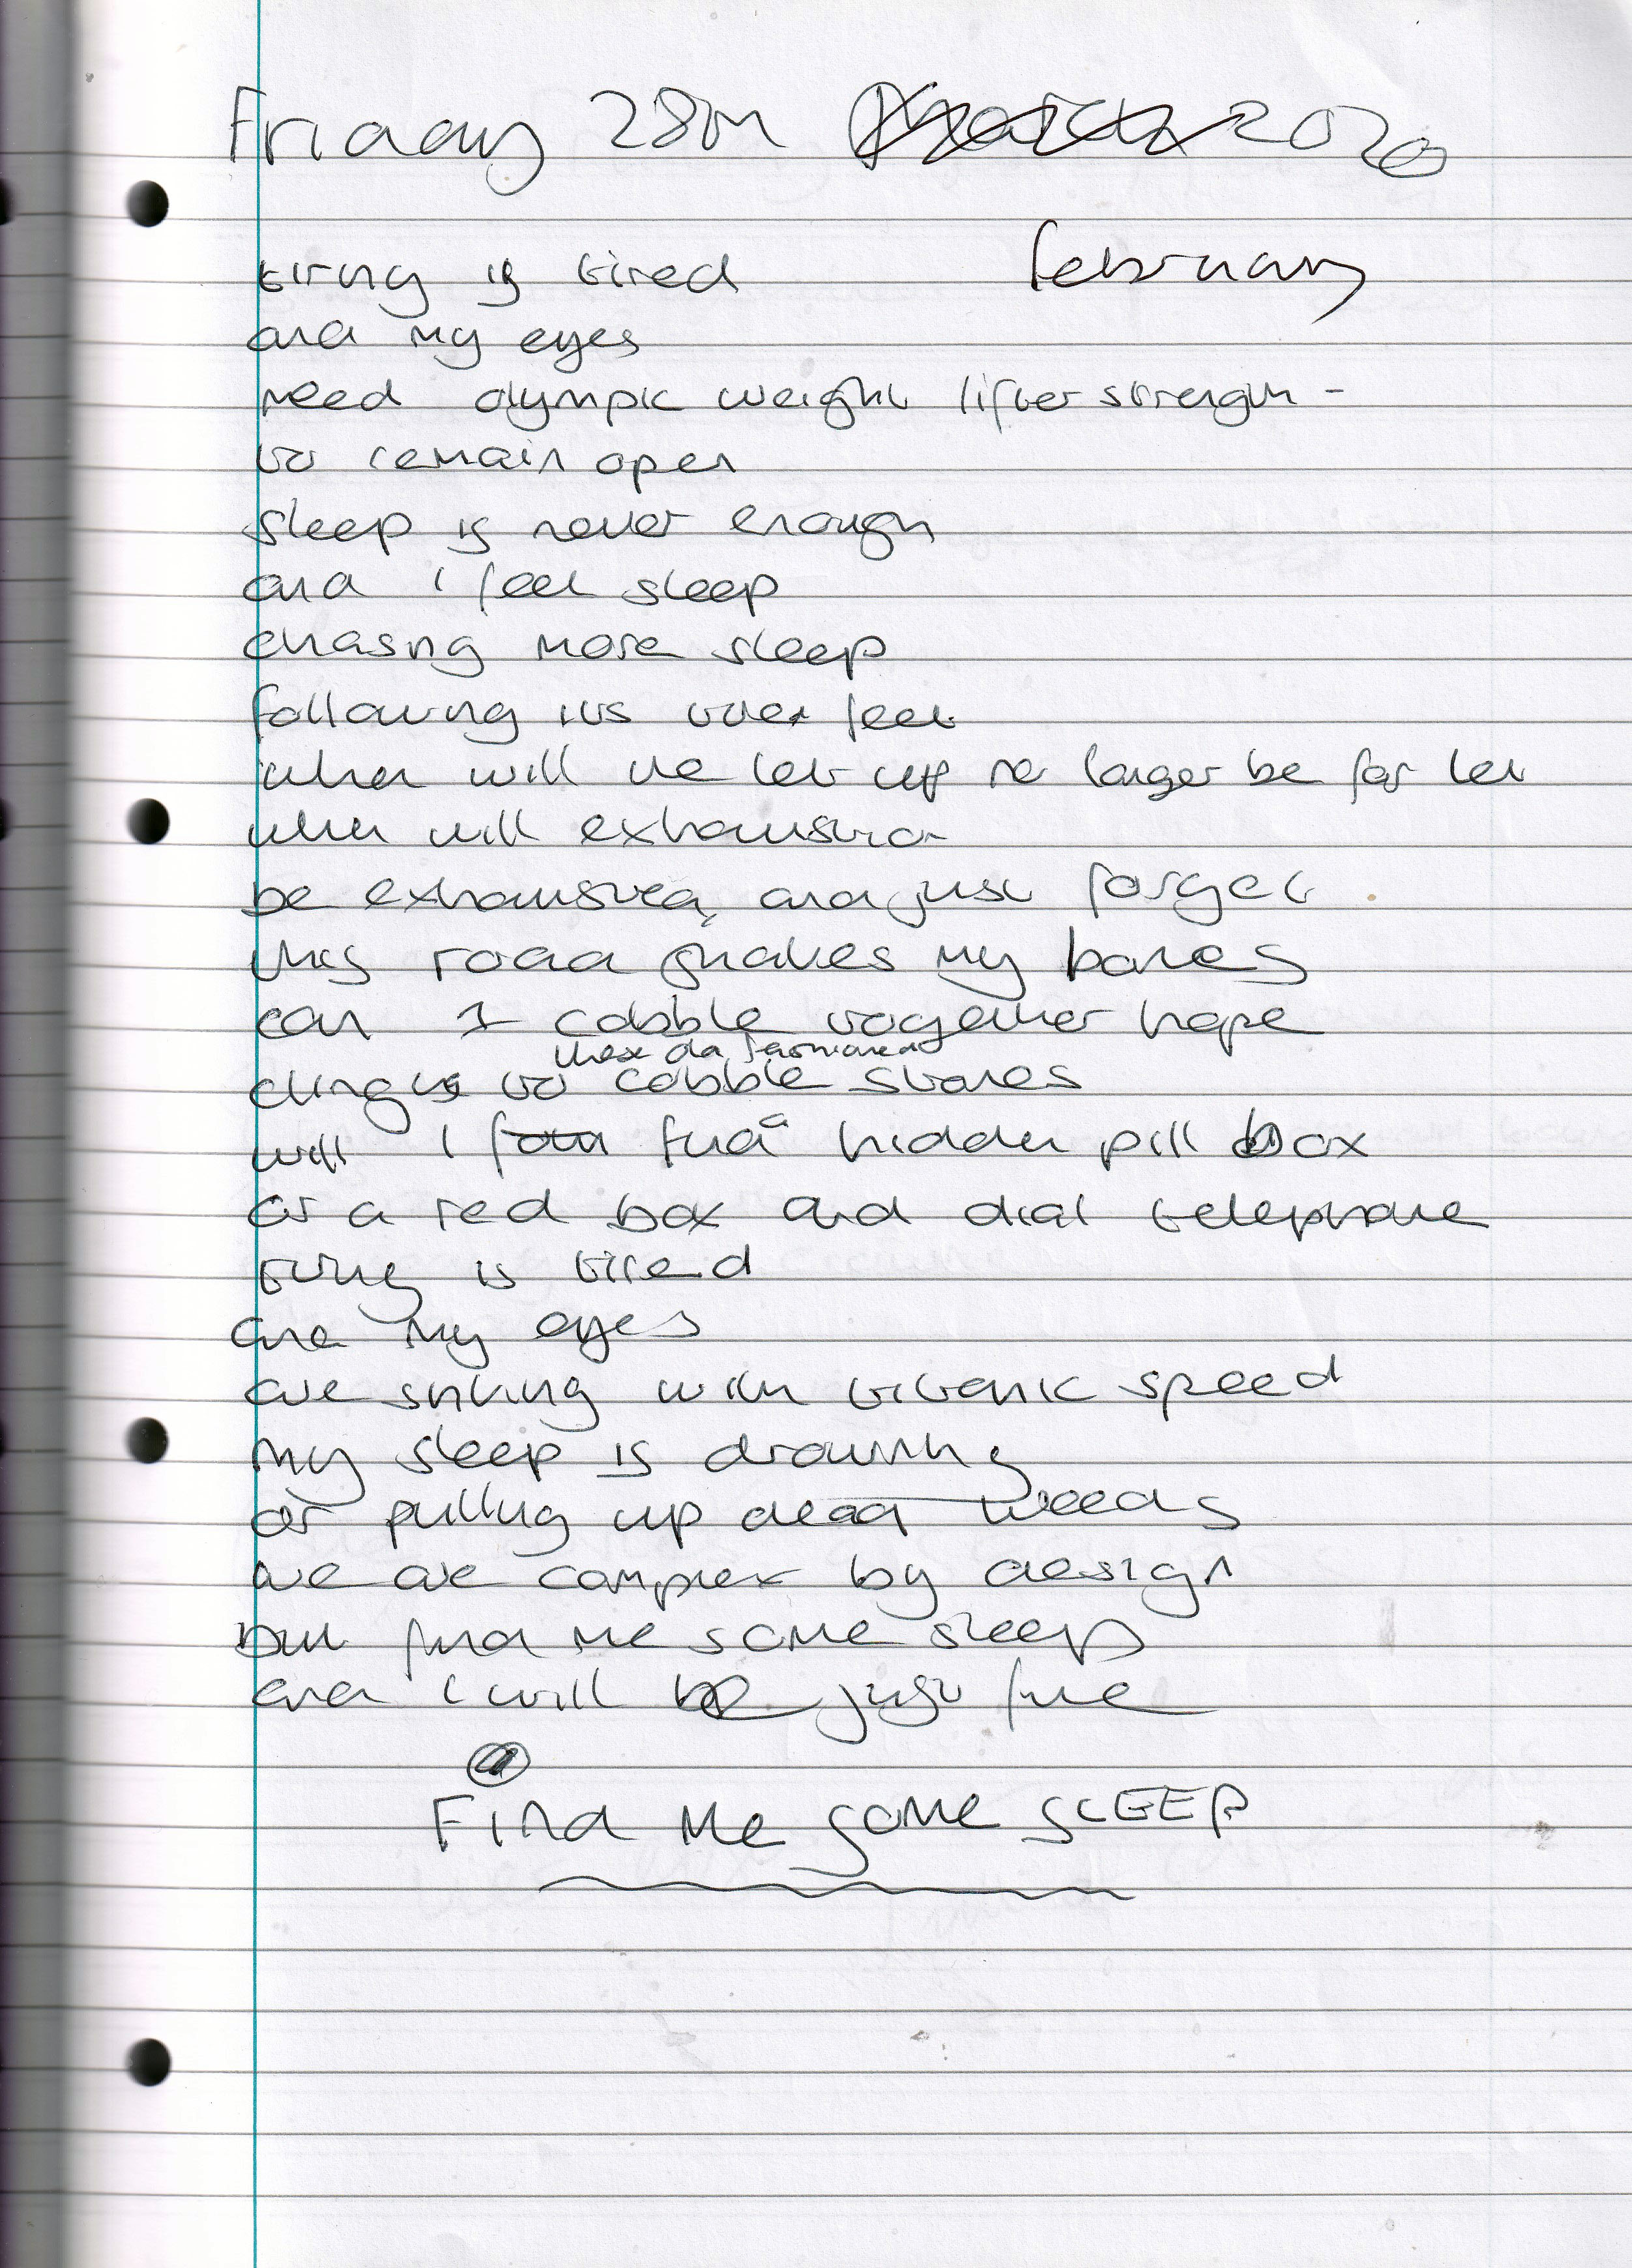 Friday 28th March 2020
february
tiring is tired
and my eyes
need olympic weight lifter strength -
to remain open
sleep is never enough
and i feel sleep
chasing more sleep
following its over feet
when will the let up no longer be for let
when will exhaustion
be exhausted, and just forget
this road shakes my bones
can I cobble together hope
these old fashioned
clinging to cobble stones
will I find a hidden pill box
or a red box and dial telephone
tiring is tired
and my eyes
are sinking with titanic speed
my sleep is drowning
or pulling up dead weeds
we are complex by design
but find me some sleep
and i will be just fine
Find Me some SLEEP